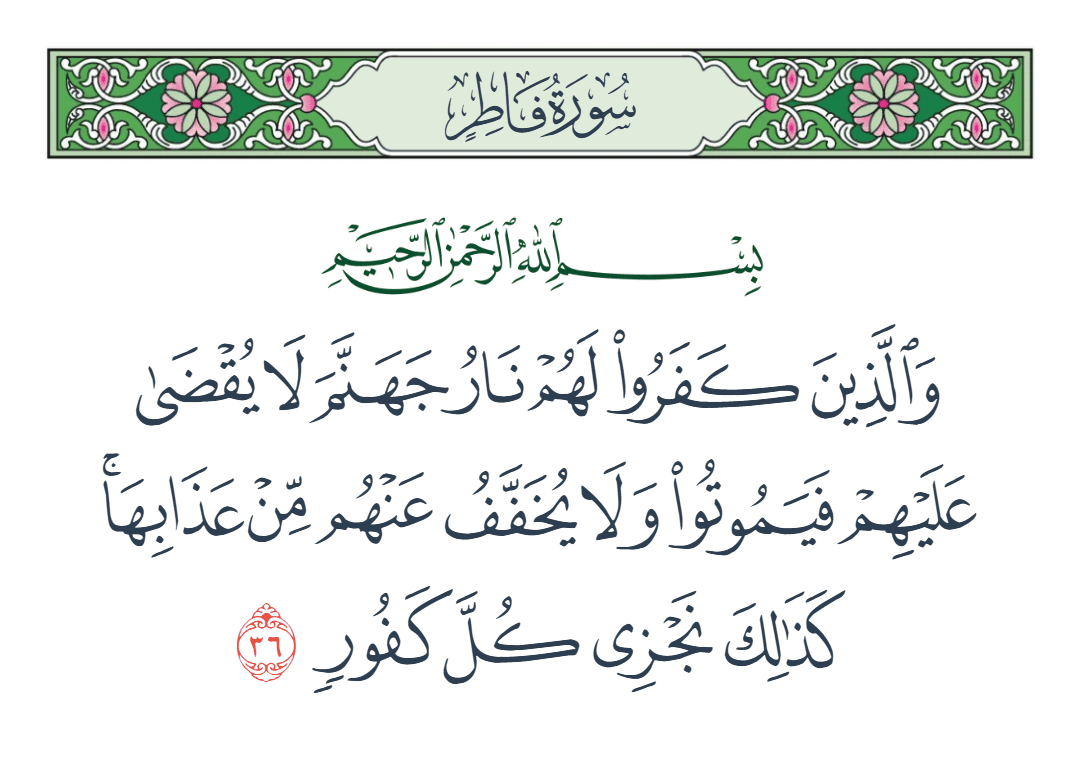 سُورَةُ فَاطِرٍ
بِسْمِ ٱللَّهِ ٱلرَّحْمَٰنِ ٱلرَّحِيمِ
وَٱلَّذِينَ كَفَرُوا۟ لَهُمْ نَارُ جَهَنَّمَ لَا يُقْضَىٰ
عَلَيْهِمْ فَيَمُوتُوا۟ وَلَا يُخَفَّفُ عَنْهُم مِّنْ عَذَابِهَا ۚ
كَذَٰلِكَ نَجْزِى كُلَّ كَفُورٍ ٣٦